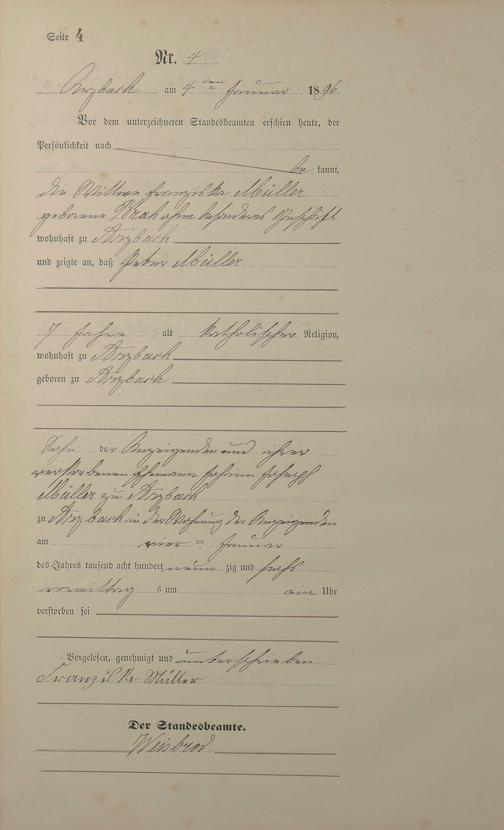 Seite 4
Nr. 4
Arzbach am 4ten Januar 1896
Vor dem unterzeichneten Standesbeamten erschien heute, der
Persönlichkeit nach
be kannt,
die Wittwe Franziska Müller
geborene ohne besonderes Geschäft
wohnhaft zu Arzbach
und zeigte an, daß Peter Müller
7 Jahre alt katholischer Religion,
wohnhaft zu Arzbach
geboren zu Arzbach
Sohn der Anzeigenden und ihrer
verstorbenen Ehemann Johann Joseph
Müller zu Arzbach
zu Arzbach in der Wohnung der Anzeigenden
am vier ten Januar
des Jahres tausend acht hundert neun zig und sechs
vormittag s um ein Uhr
verstorben sei
Vorgelesen, genehmigt und unterschrieben
Franziska Müller
Der Standesbeamte.
Weisbrod